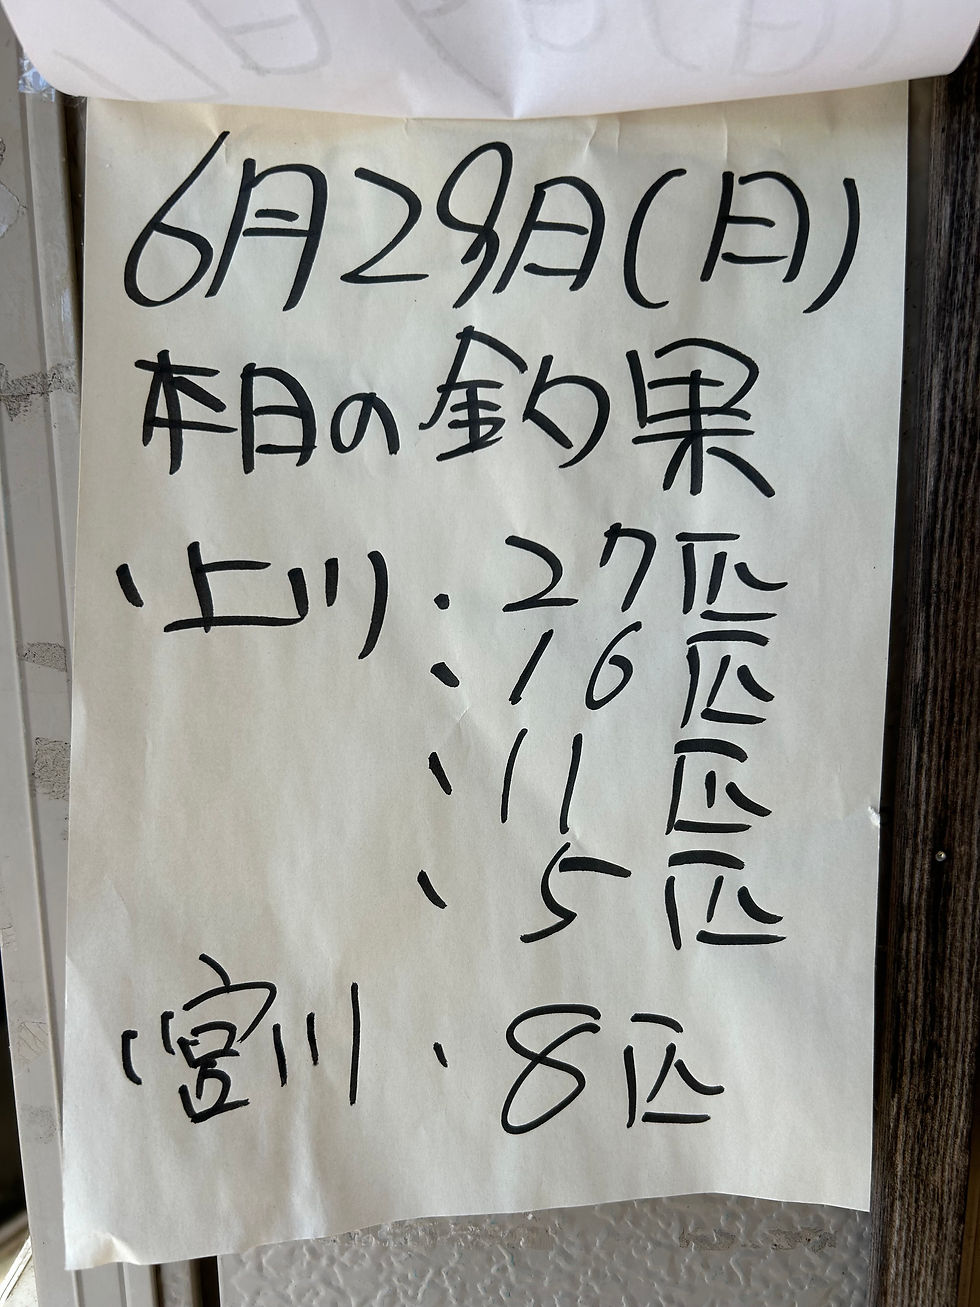 6月29日(日)
本日の釣果
・上川・27匹
・16匹
・11匹
・5匹
・宮川・8匹